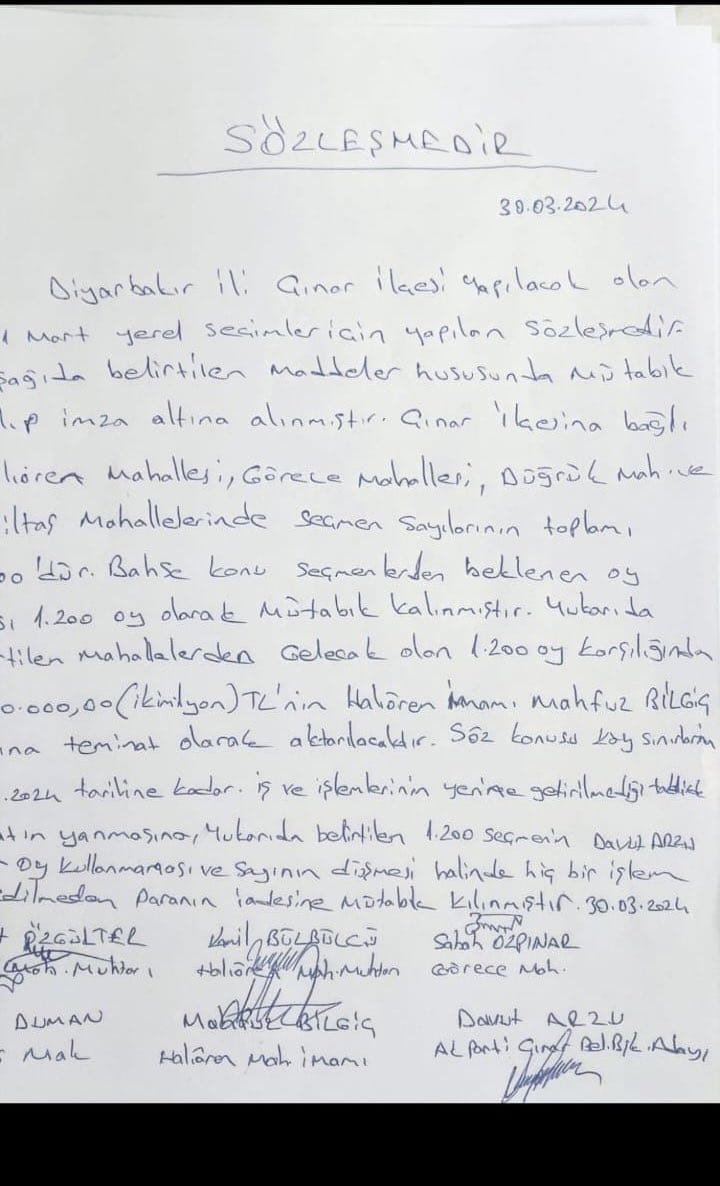 SÖZLEŞMEDİR
30.03.2024
Diyarbakır ili Çınar ilçesi yapılacak olan
1 Mart yerel seçimler için yapılan sözleşmedir.
şağıda belirtilen maddeler hususunda mütabık
lıp imza altına alınmıştır. Çınar ilçesina bağlı
liören Mahallesi, Görece Mahallesi, Düğrük Mah. ve
iltaş Mahallelerinde seçmen sayılarının toplamı
00'dür. Bahse konu seçmenlerden beklenen oy
sı 1.200 oy olarak mütabık kalınmıştır. Yukarıda
tilen mahallelerden Gelecek olan 1.200 oy karşılığında
0.000,00 (ikimilyon) TL'nin Haliören imamı Mahfuz BİLGİÇ
ına teminat olarak aktarılacaktır. Söz konusu köy sınırların
.2024 tarihine kadar. iş ve işlemlerinin yerine getirilmediği taktirde
tın yanmasına, Yukarıda belirtilen 1.200 seçmenin Davut ARZU
oy kullanmaması ve sayının düşmesi halinde hiç bir işlem
dilmeden Paranın iadesine mütabık kılınmıştır. 30.03.2024
ÖZGÜLTER Kamil BÜLBÜLCÜ Sabah ÖZPINAR
Muhtarı Haliören Mah. Muhtarı Görece Mah.
DUMAN Mahfuz BİLGİÇ Davut ARZU
Mah Haliören Mah. imamı AK Parti Çınar Bel. Bşk. Adayı